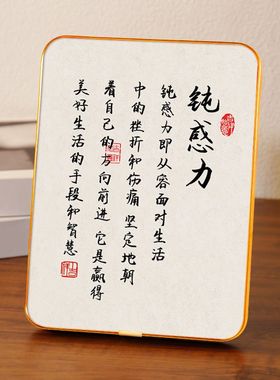 钝感力
钝感力即从容面对生活
中的挫折和伤痛 坚定地朝
着自己的方向前进 它是赢得
美好生活的手段和智慧